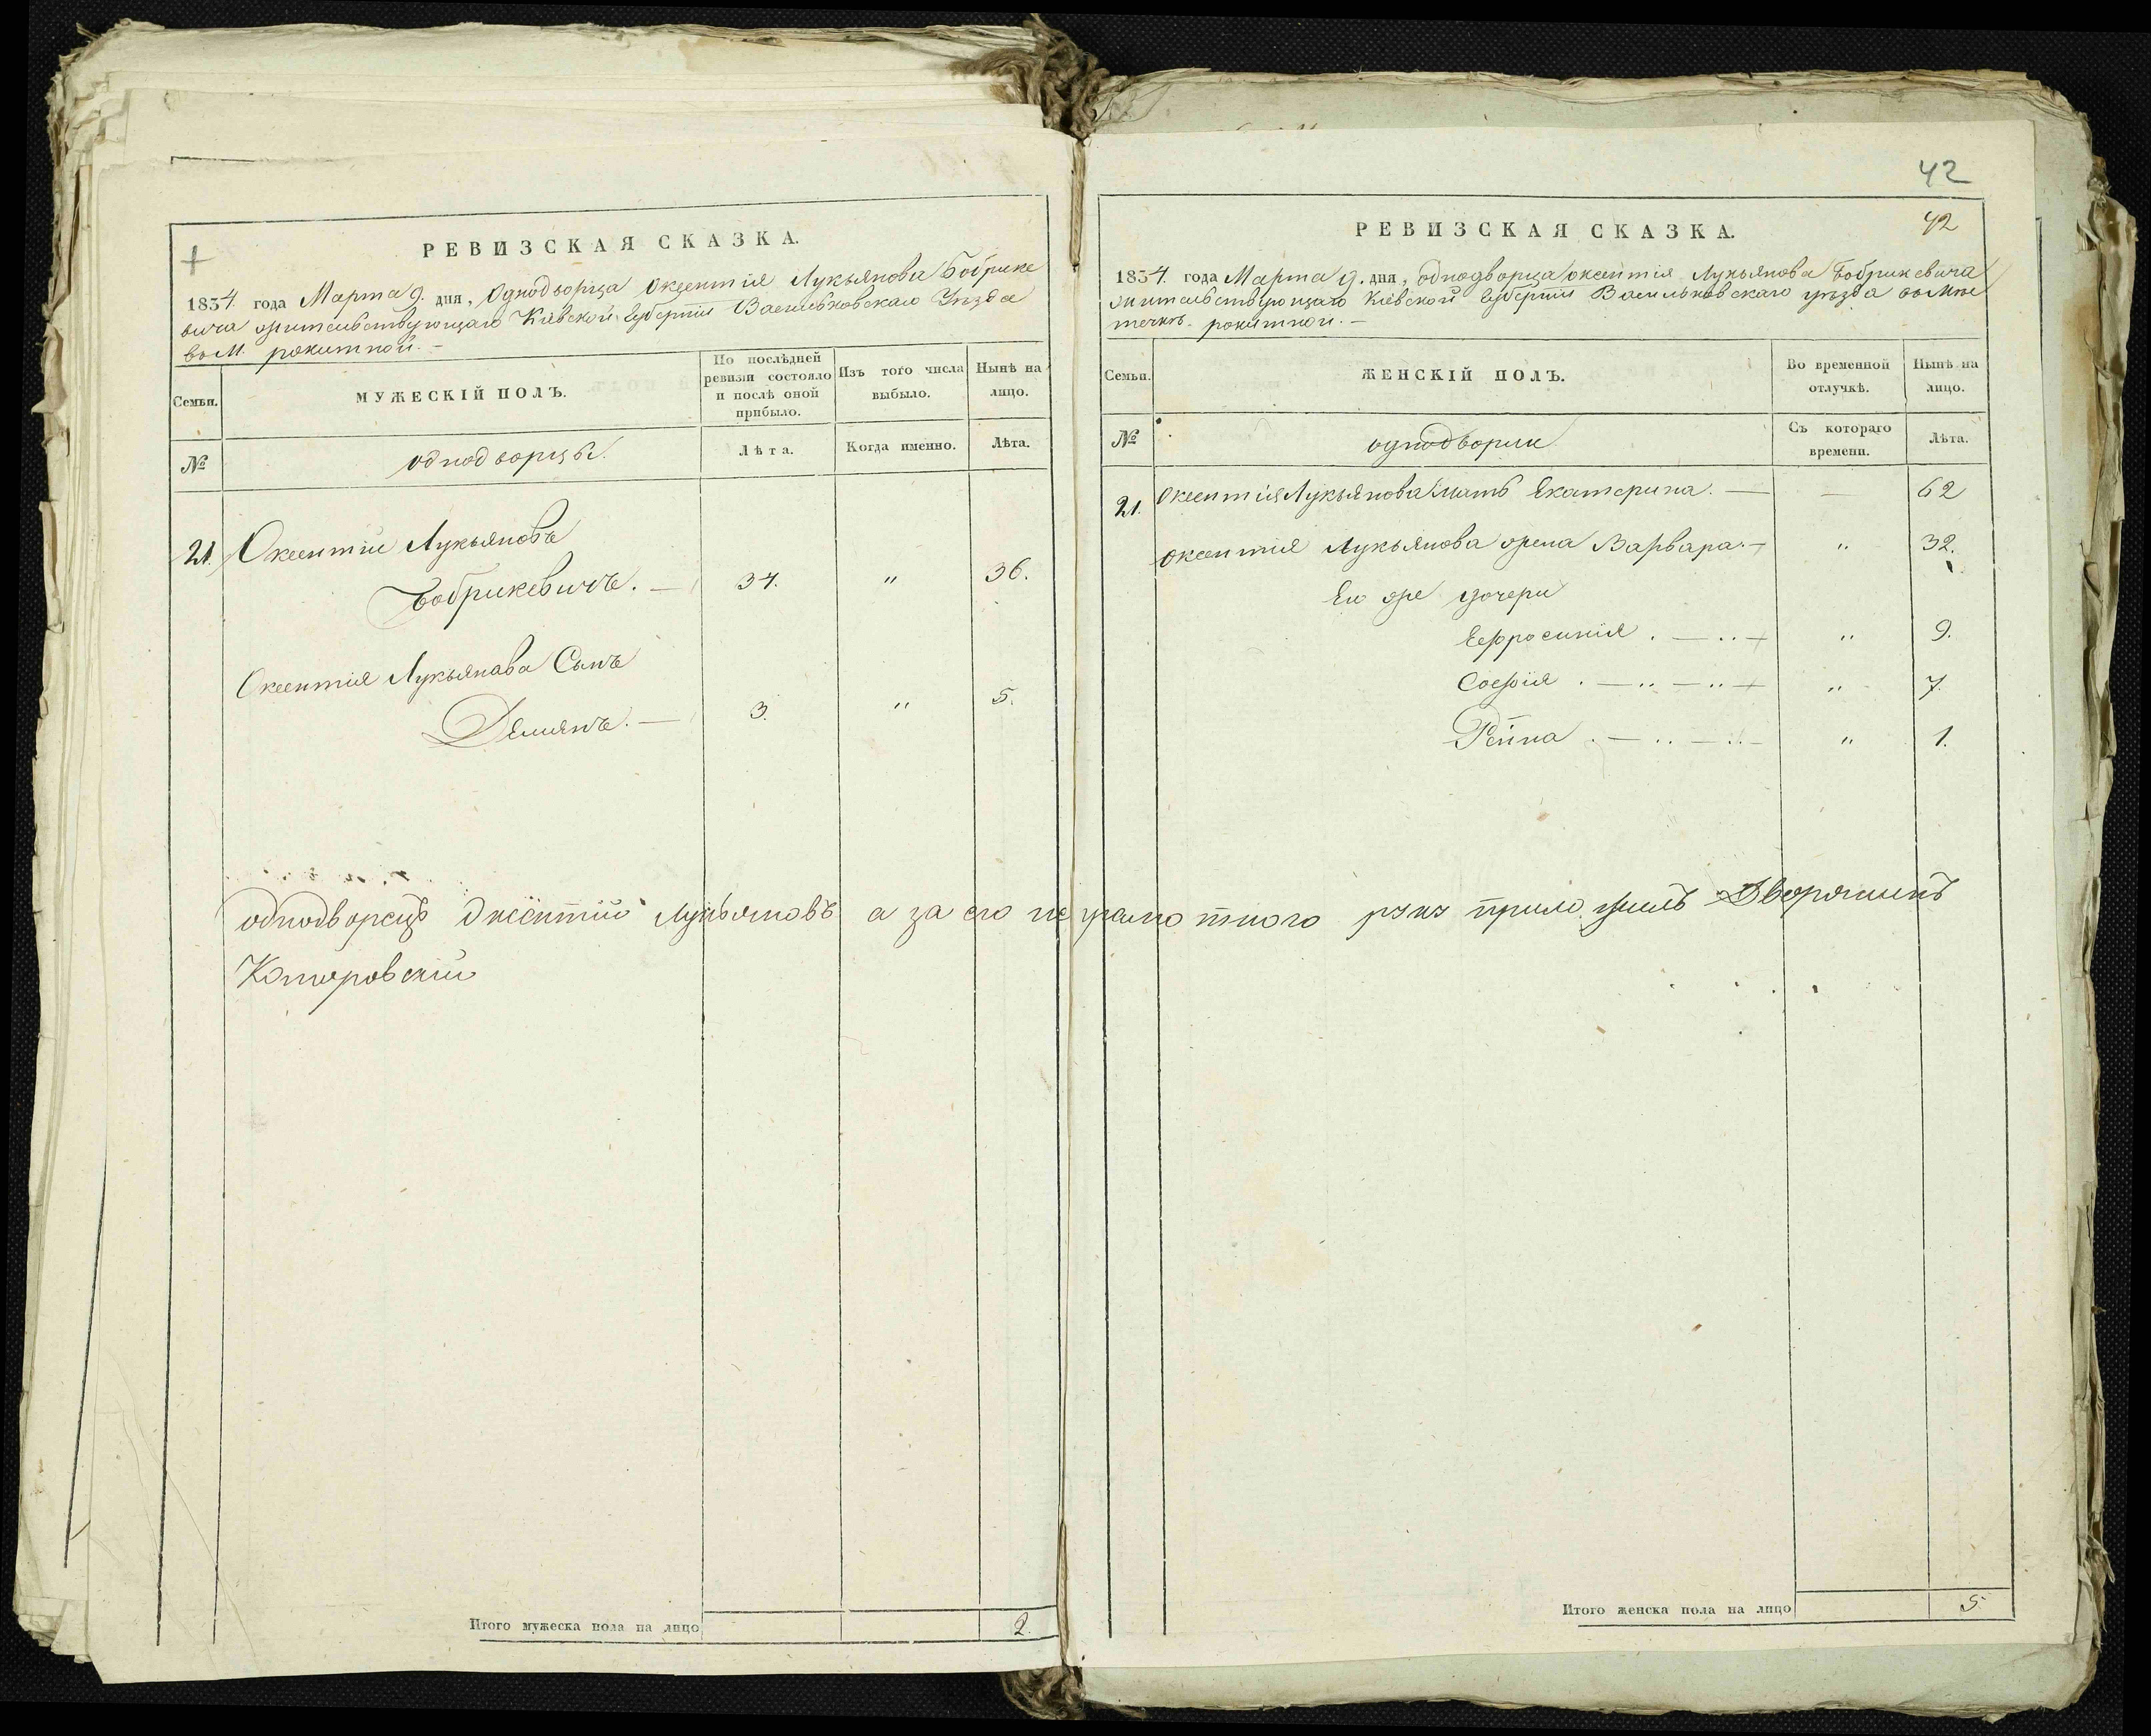 РЕВИЗСКАЯ СКАЗКА.
1834. года Марта 9. дня, Однодворца Оксентія Лукьянова Бобрике
вича жительствующаго Кіевской Губерніи Васильковскаго Уѣзда
въ М. рокитной. -
Семьи.
МУЖЕСКІЙ ПОЛЪ.
По послѣдней ревизіи состояло и послѣ оной прибыло.
Изъ того числа выбыло.
Нынѣ на лицо.
№
однодворцы.
Лѣта.
Когда именно.
Лѣта.
21. Оксентій Лукьяновъ
Бобрикевичъ. — 34. " 36.
Оксентія Лукьянова Сынъ
Демянъ. — 3. " 5.
однодворецъ Оксентій Лукьяновъ а за его неграмотного руку приложилъ Дворянинъ
Которовскій
Итого мужеска пола на лицо 2.
42
42
РЕВИЗСКАЯ СКАЗКА.
1834. года Марта 9. дня, однодворца оксентія Лукьянова Бобрикевича
жительствующаго Кіевской Губерніи Васильковскаго уѣзда въ Мѣс
течкѣ рокитной. -
Семьи.
ЖЕНСКІЙ ПОЛЪ.
Во временной отлучкѣ.
Нынѣ на лицо.
№
однодворки
Съ котораго времени.
Лѣта.
21. Оксентія Лукьянова мать Екатерина. — — 62
оксентія Лукьянова жена Варвара. — " 32.
Ею же дочери
Ефросинія . — " 9.
Софія . — " 7.
" 1.
Итого женска пола на лицо 5.